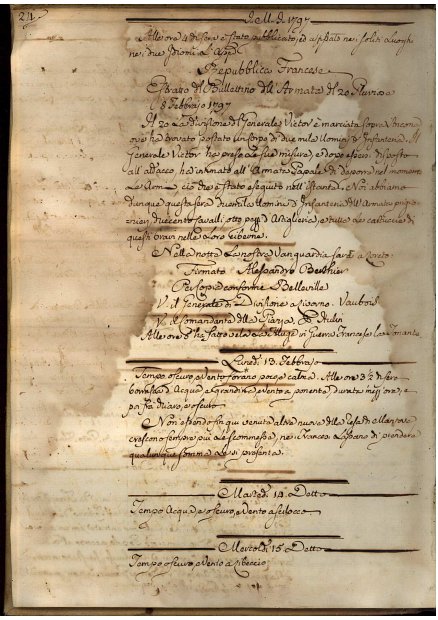 24
G. M. D. 1797
Alle ore 4 di sera è stato pubblicato, ed affisso ne' soliti Luoghi
ne' due Idiomi
Repubblica Francese
Estratto del Bullettino dell'Armata del 20 Piovoso
8 Febbrajo 1797
Il 20 La divisione del Generale Victor è marciata sopra Ancona
ove ha trovato postato un corpo di due mila Uomini d'Infanteria. Il
Generale Victor ha preso le sue misure, e dopo essersi disposto
all'attacco, ha intimato all'Armata Papale di deporre nel momento
le Arme, ciò che è stato eseguito nell'istante. Noi abbiamo
dunque questa sera duemila Uomini d'Infanteria dell'Armata
duecento Cavalli, otto pezzi d'Artiglieria, e tutte le
questi bravi nelle loro
Nella notte La nostra Vanguardia sarà a Loreto
Firmato Alessandro Berthier
Per copia conforme Belleville
V. il Generale di Divisione a Livorno Vaubois
V. il Comandante della Piazza
Alle ore 8 ha fatto vela da Guerra Francese La
Lunedì 13 Febbrajo
Tempo oscuro, e Vento forano poco a calma. Alle ore 3½ di sera
borrasca d'Acqua, e Grandine, e Vento a ponente, durata mezz'ora, e
poi fra chiaro, e oscuro
Non essendo fin qui venuta altra nuova della resa di Mantova
crescono sempre più le scommesse, ne' i Francesi lasciano di prendere
qualunque somma le si presenta.
Martedì 14 Detto
Tempo Acqua, e oscuro, e Vento a scilocco
Mercoldì 15 Detto
Tempo oscuro, e Vento a libeccio